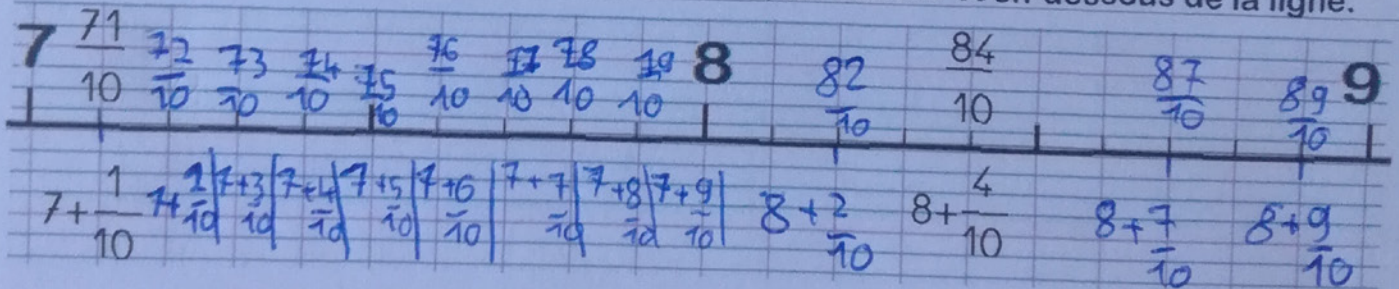 en dessous de la ligne.
7 71/10 72/10 73/10 74/10 75/10 76/10 77/10 78/10 79/10 8 82/10 84/10 87/10 89/10 9
7+1/10 7+2/10 7+3/10 7+4/10 7+5/10 7+6/10 7+7/10 7+8/10 7+9/10 8+2/10 8+4/10 8+7/10 8+9/10